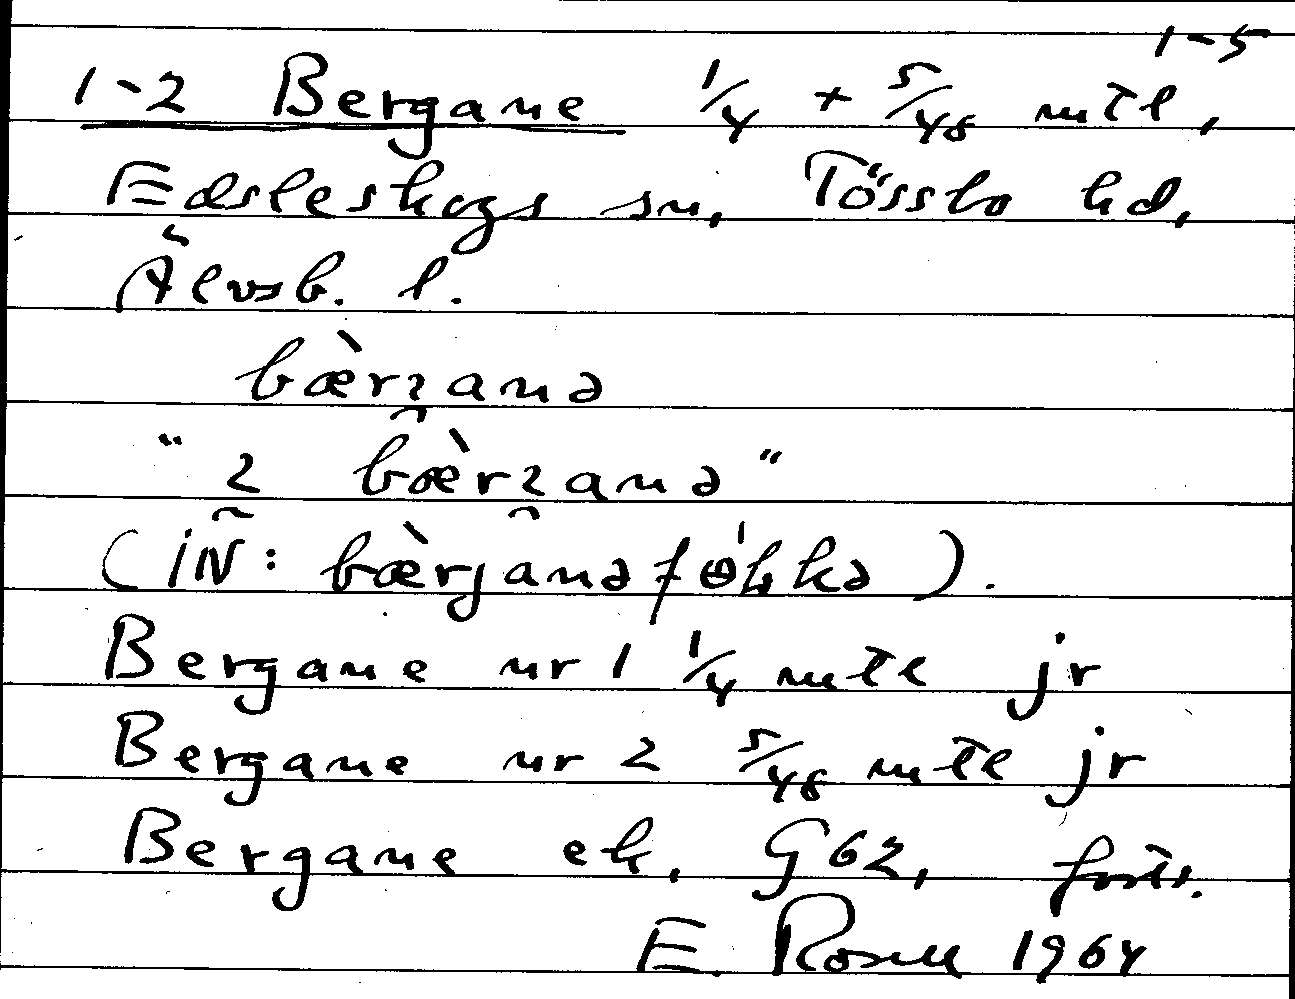 1-5
1-2 Bergane 1/4 + 5/48 mtl,
Edsleskogs sn, Tössbo hd,
Älvsb. l.
bæ̀rɿanə
" 2 bæ̀rɿanə "
(iN: bæ̀rjanəfɵ́lkə).
Bergane nr 1 1/4 mtl jr
Bergane nr 2 5/48 mtl jr
Bergane ek. G62, forts.
E. Rosell 1964